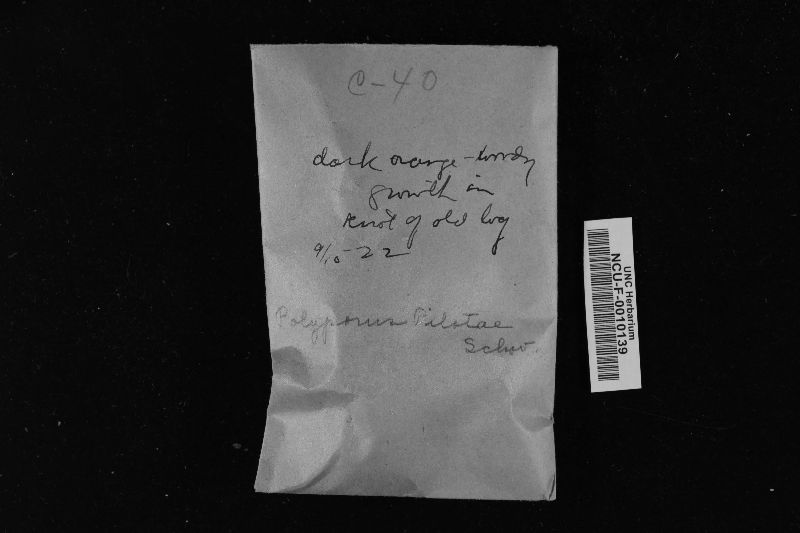 C-40
dark orange-woody
growth in
knot of old log
9/10-22
Polyporus Pilotae
Schw.
UNC Herbarium
NCU-F-0010139